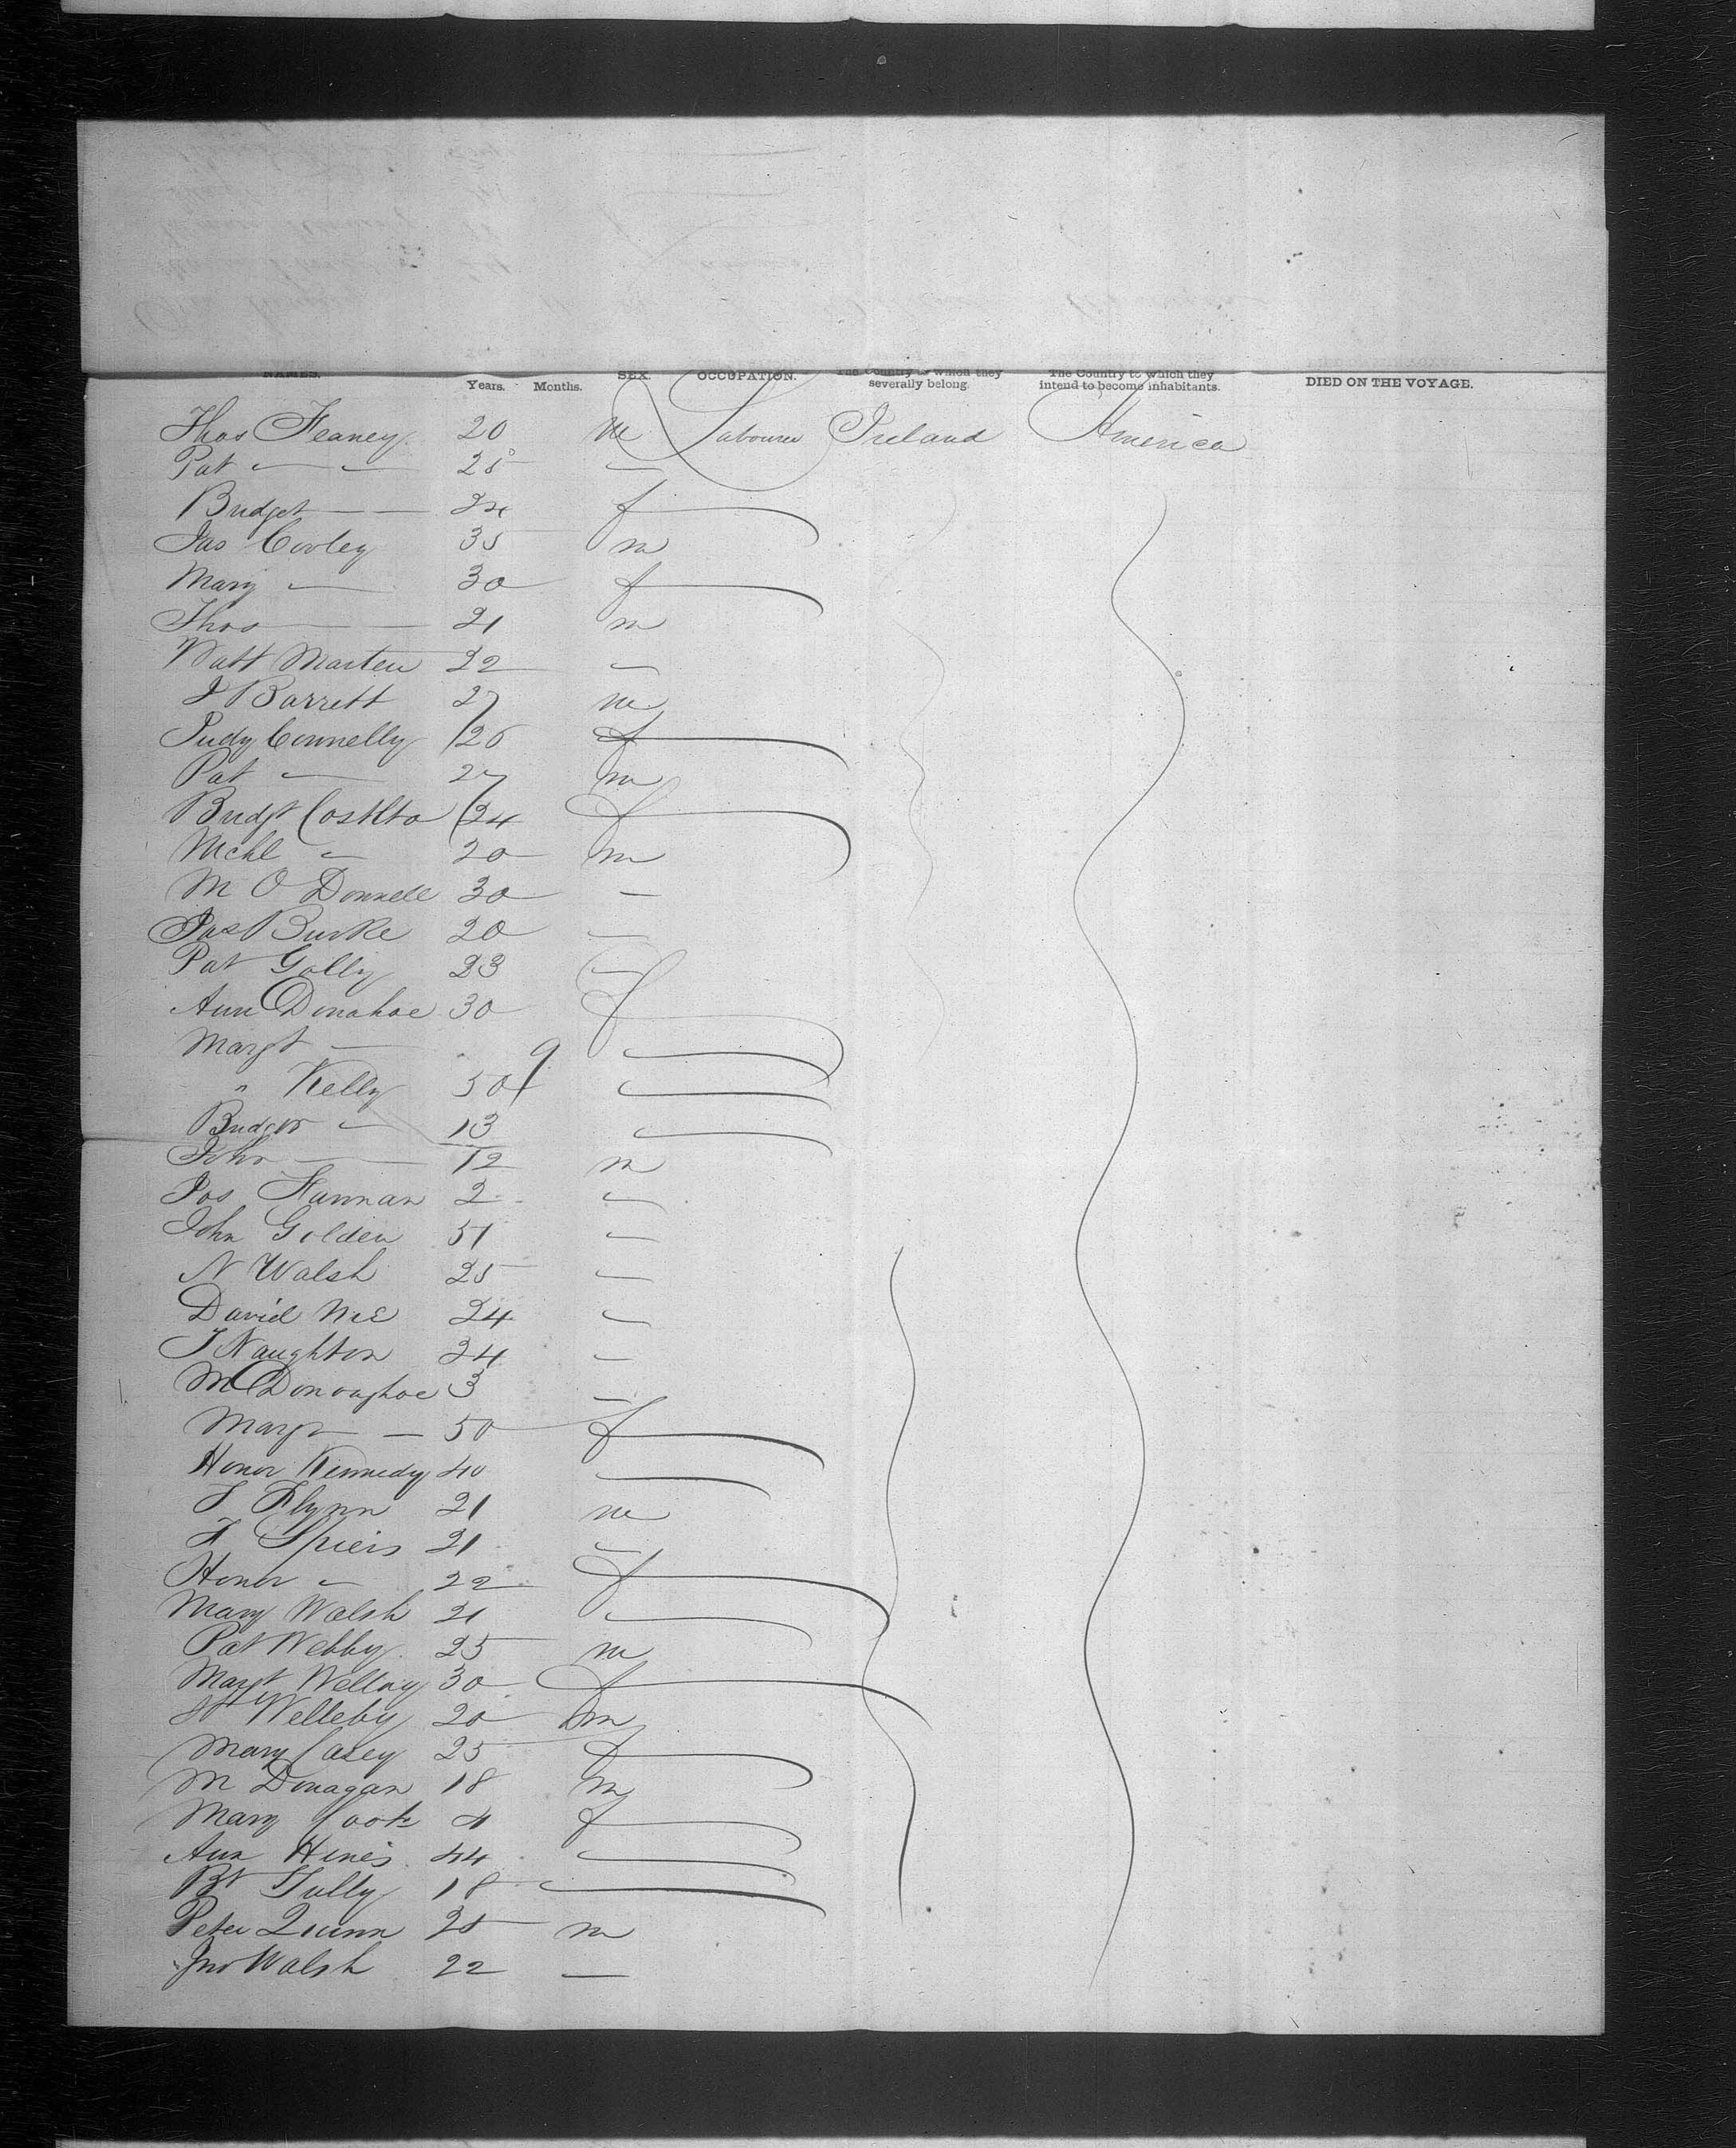 NAMES. Years. Months. SEX. OCCUPATION. The Country to which they severally belong. The Country to which they intend to become inhabitants. DIED ON THE VOYAGE.
Thos Feaney 20 m Labourer Ireland America
Pat — — 25 —
Bridget — — 24 f
Jas Cooley 35 m
Mary — 30 f
Thos — — 21 m
Watt Marten 22 —
J Barrett 27 m
Judy Connelly 26 f
Pat — 27 m
Bridgt Costlto 24 f
Mchl " 20 m
M O Donnell 30 —
Jas Burke 20 —
Pat Golly 23 —
Ann Donahoe 30 f
Margt — 9 —
" Kelly 50 —
Bridget — 13 —
John — 12 m
Jos Hannan 2 —
John Golden 51 —
N Walsh 25 —
David 24 —
J Naughton 24 —
M Donoughoe 3 —
Margt — 50 f
Honor Kennedy 40 —
J Flynn 21 m
Spiers 21 —
Honor " 22 f
Mary Walsh 21 —
Pat Webby 25 m
Margt 30 f
Welleby 20 m
Mary Casey 25 f
M Donagan 18 m
Mary Cook 4 f
Ann Hines 44 —
Bt Tully 18 —
Peter Quinn 25 m
Jno Walsh 22 —